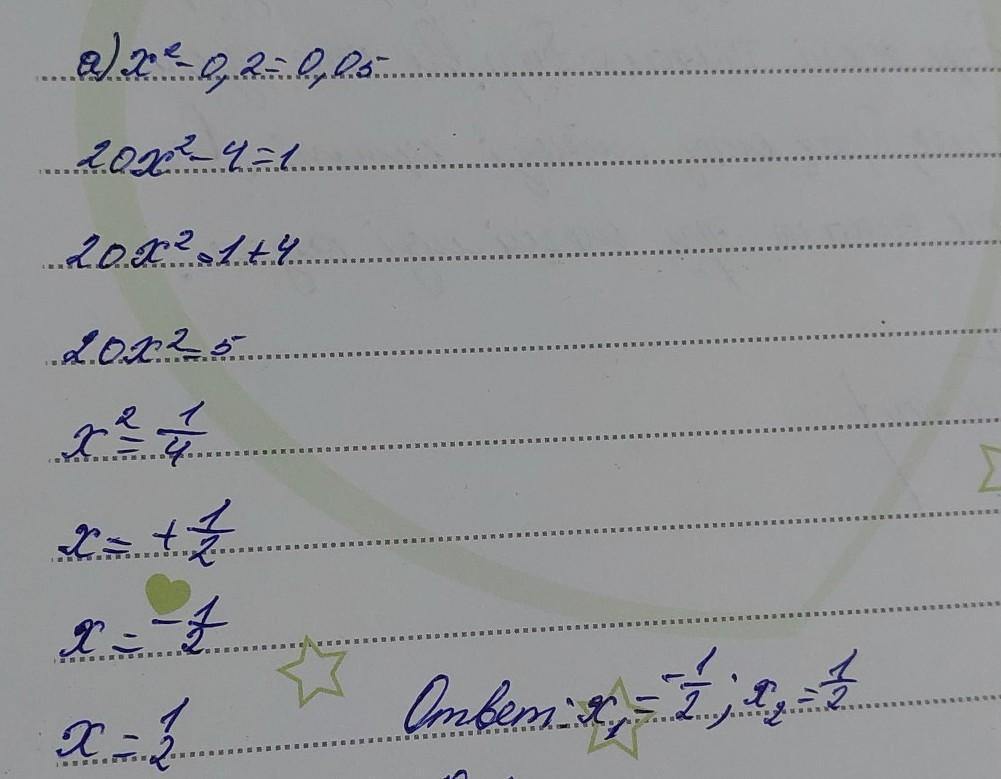 а) x² - 0,2 = 0,05
20x² - 4 = 1
20x² = 1 + 4
20x² = 5
x² = 1/4
x = + 1/2
x = - 1/2
x = 1/2 Ответ: x₁ = -1/2; x₂ = 1/2